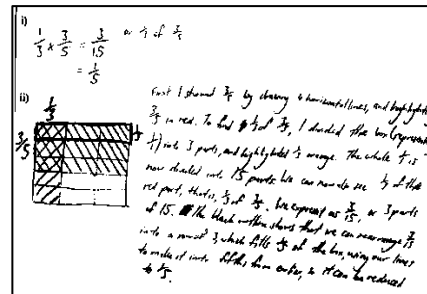 i)
1/3 x 3/5 = 3/15 or 1/3 of 3/5
= 1/5
ii)
1/3
3/5
1/5
First I showed 3/5 by drawing 4 horizontal lines, and highlighted
3/5 in red. To find 1/3 of 3/5, I divided the box (represents
1/1) into 3 parts, and highlighted 1/3 orange. The whole 1/1 is
now divided into 15 parts. We can now also see 1/3 of the
red part, that is, 1/3 of 3/5. We express as 3/15, or 3 parts
of 15. The black outline shows that we can rearrange 3/15
into a row of 3, which fills 1/5 of the box, using our lines
to make it into fifths from earlier, so it can be reduced
to 1/5.